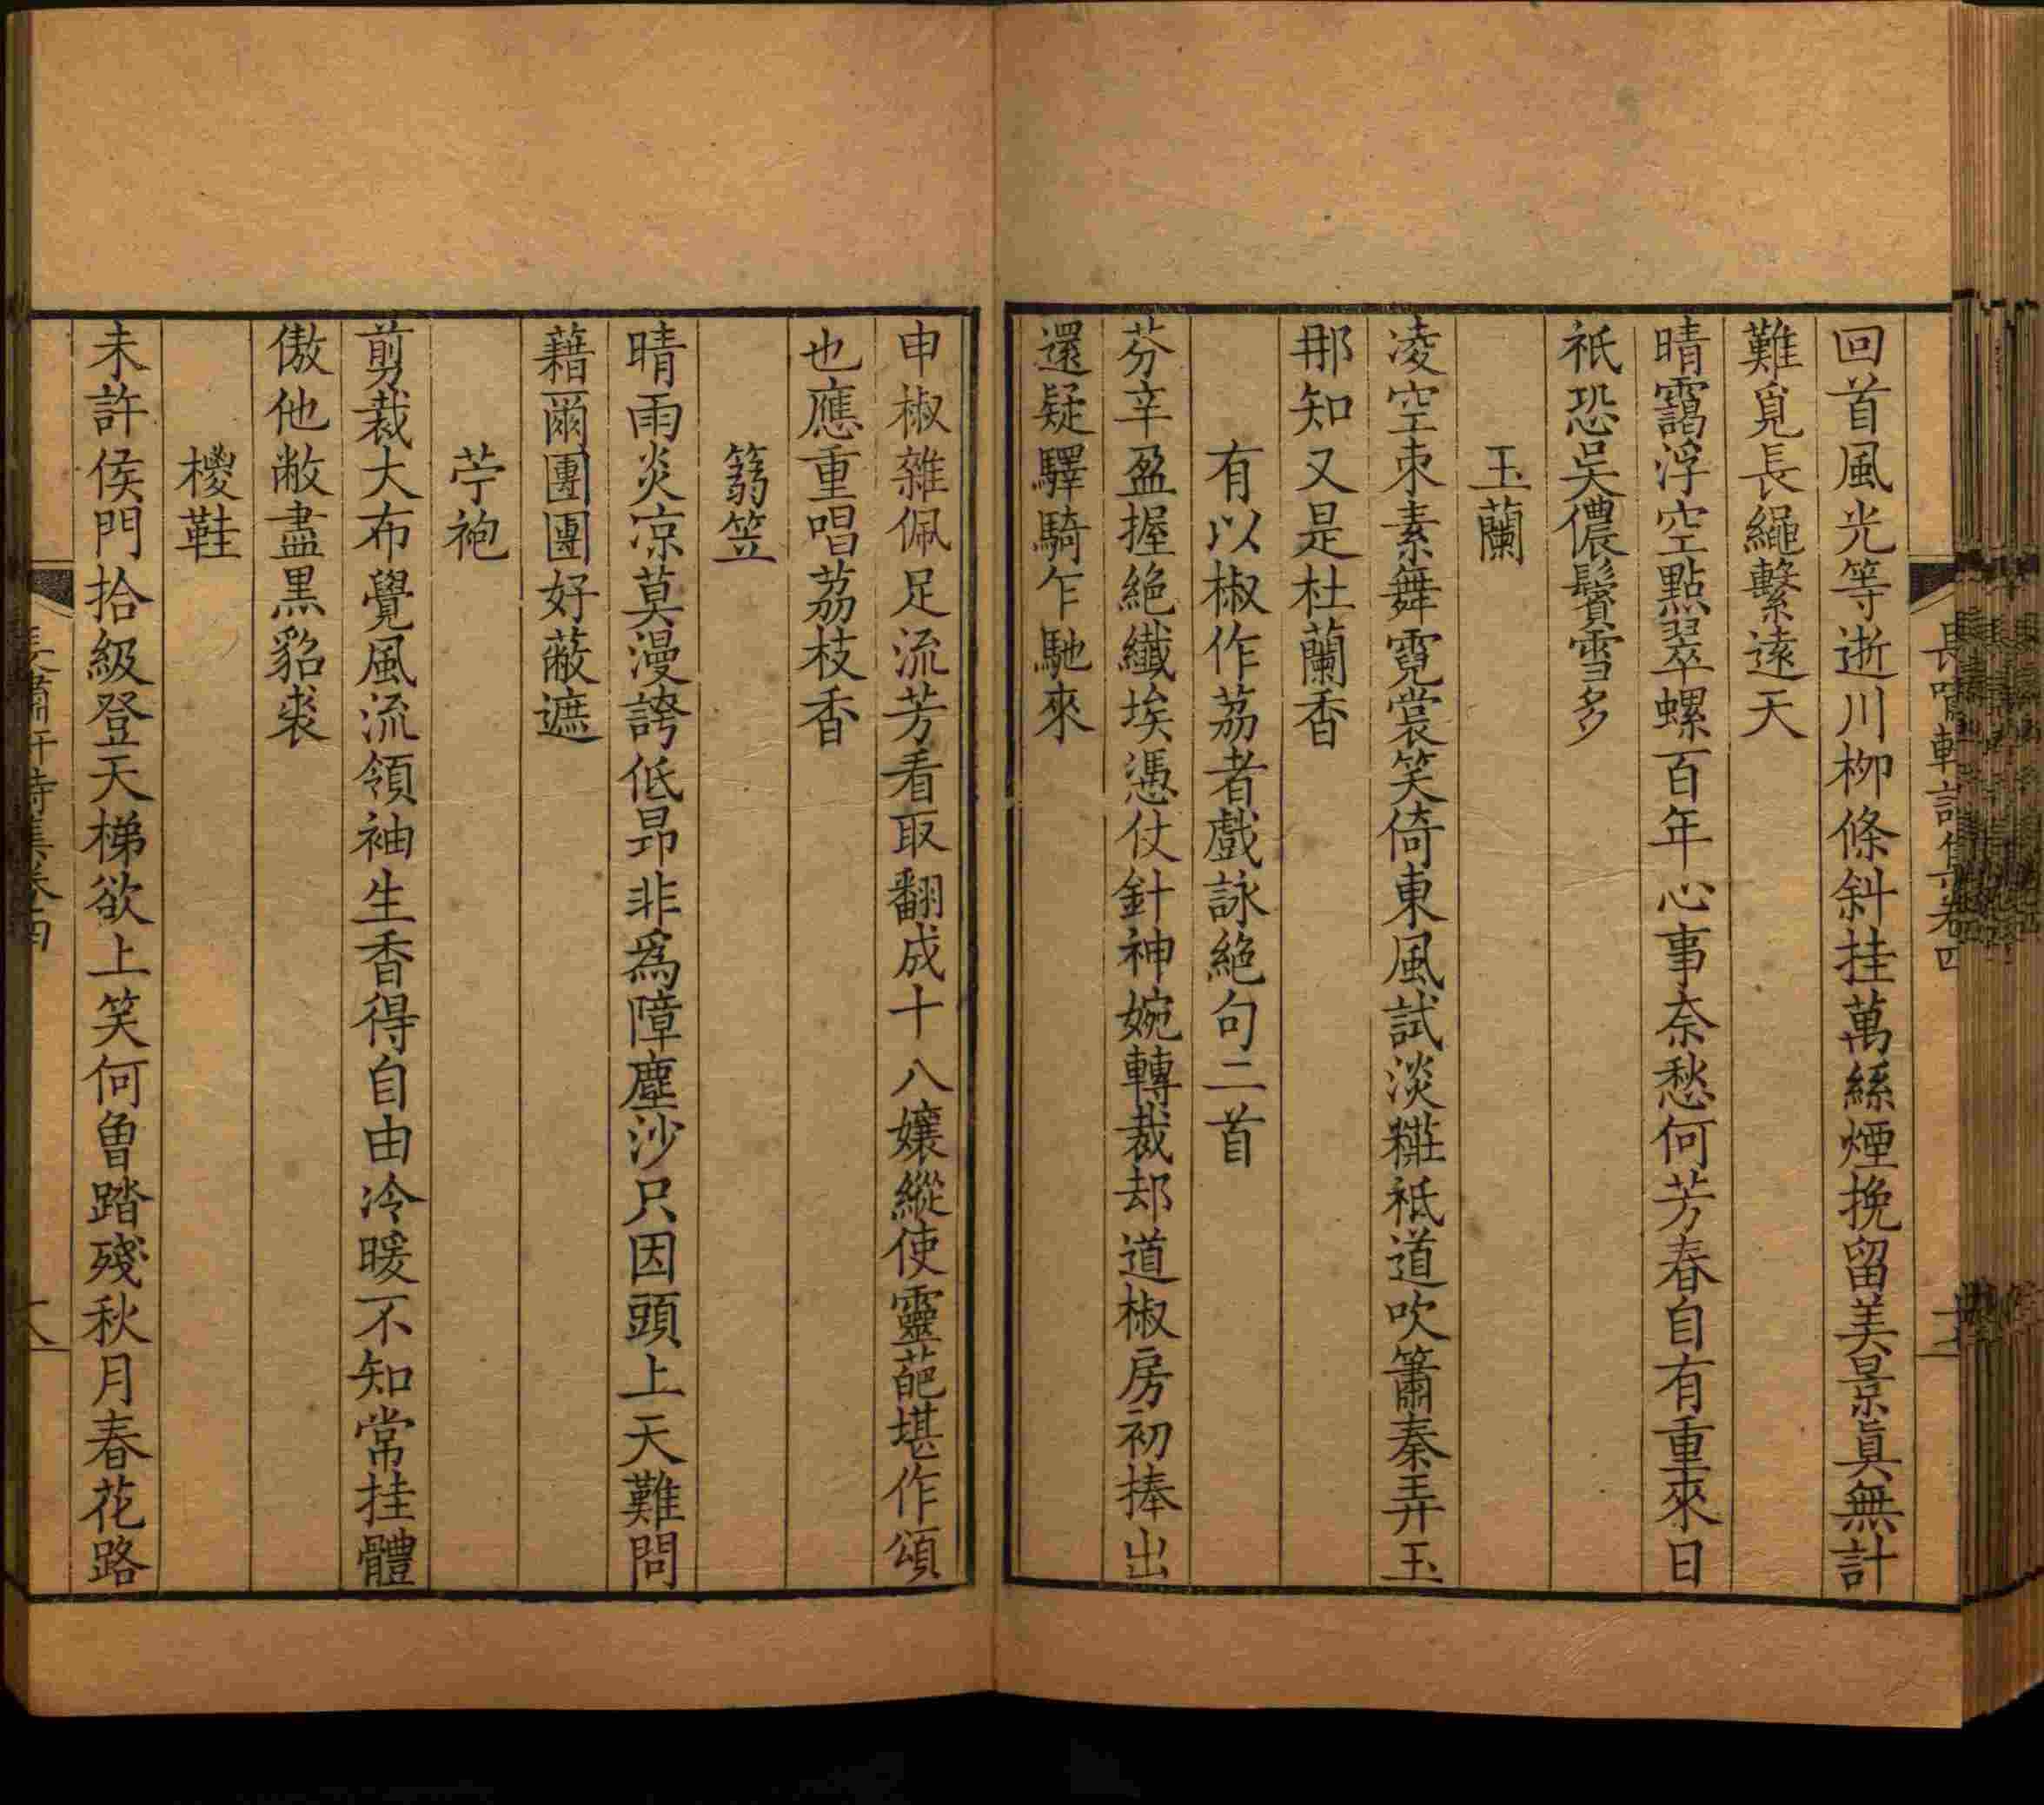 回首風光等逝川柳條斜挂萬絲煙挽留美景眞無計
難覓長繩繫遠天
晴靄浮空點翠螺百年心事奈愁何芳春自有重來日
祇恐吳儂鬢雪多
玉蘭
凌空朿素舞霓裳笑倚東風試淡糚祗道吹簫秦弄玉
那知又是杜蘭香
有以椒作荔者戲詠絕句二首
芬辛盈握絕纖埃憑仗針神婉轉裁却道椒房初捧出
還疑驛騎乍馳來
申椒雜佩足流芳看取翻成十八孃縱使靈葩堪作頌
也應重唱荔枝香
篛笠
晴雨炎凉莫漫誇低昻非爲障塵沙只因頭上天難問
藉爾團團好蔽遮
苧袍
剪裁大布覺風流領袖生香得自由冷暖不知常挂體
傲他敝盡黑貂裘
椶鞋
未許侯門拾級登天梯欲上笑何曾踏殘秋月春花路